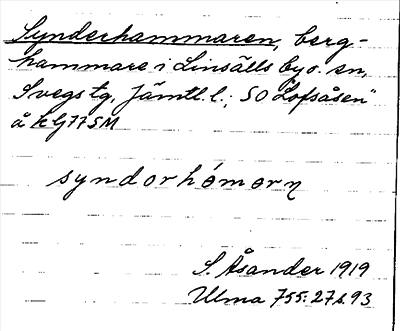 Synderhammaren, berg-
hammare i Linsälls by o. sn,
Svegs tg, Jämtl. l.; SO "Lofsåsen"
å kbl 77 SM
syndorhámorn
S. Åsander 1919
Ulma 755:27 s. 93